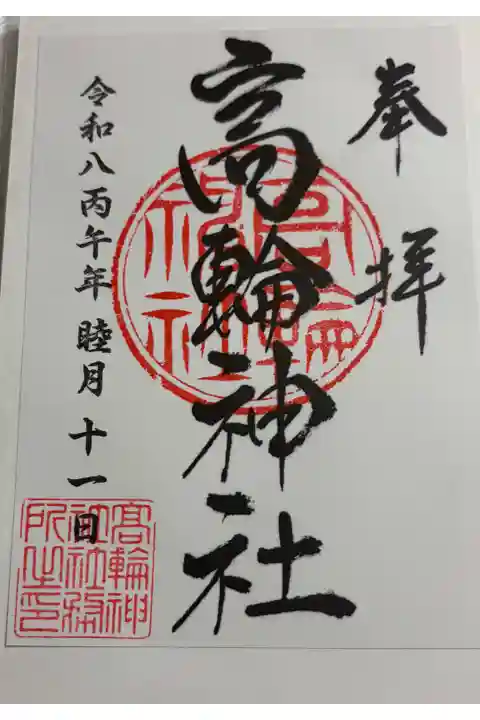 奉拝
高輪神社
令和八丙午年 睦月 十一日
高輪神社
高輪神
社社務
所之印